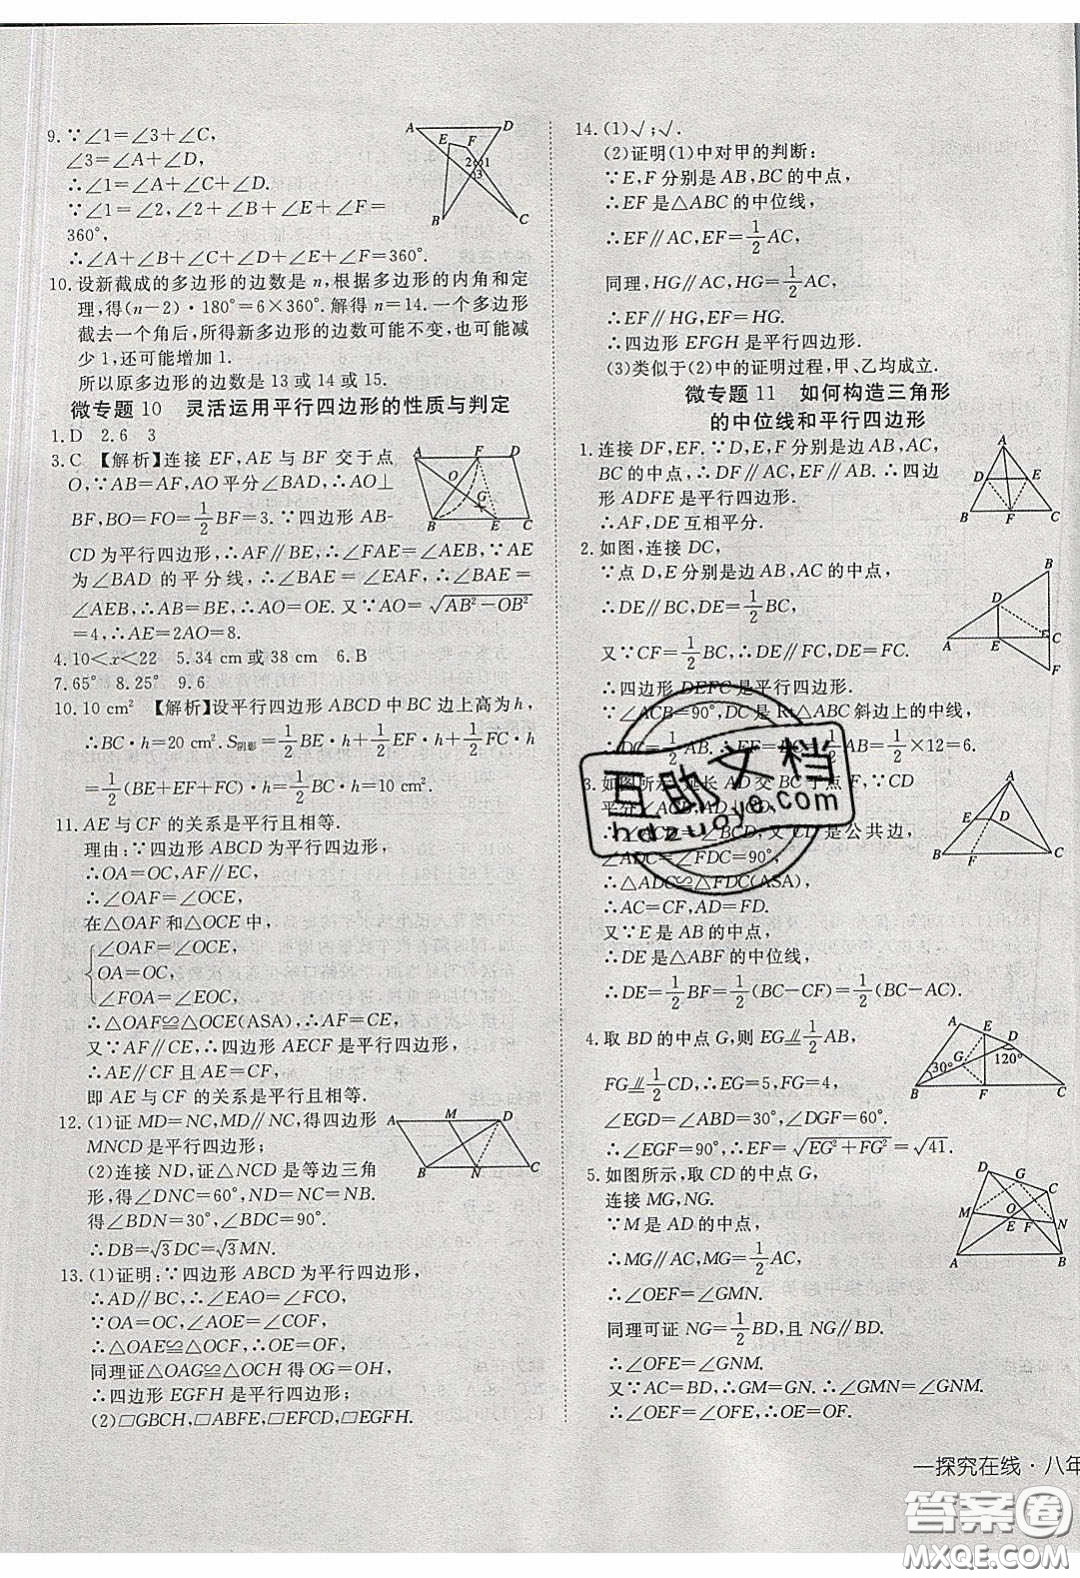 9. ∵∠1=∠3+∠C,
∠3=∠A+∠D,
∴∠1=∠A+∠C+∠D.
∵∠1=∠2,∠2+∠B+∠E+∠F=
360°,
∴∠A+∠B+∠C+∠D+∠E+∠F=360°.
10. 设新截成的多边形的边数是 n,根据多边形的内角和定
理,得(n-2)·180°=6×360°. 解得 n=14. 一个多边形
截去一个角后,所得新多边形的边数可能不变,也可能减
少 1,还可能增加 1.
所以原多边形的边数是 13 或 14 或 15.
微专题 10 灵活运用平行四边形的性质与判定
1. D 2. 6 3
3. C 【解析】连接 EF,AE 与 BF 交于点
O,∵AB=AF,AO平分∠BAD,∴AO⊥
BF,BO=FO=1/2BF=3. ∵四边形 AB-
CD为平行四边形,∴AF∥BE,∴∠FAE=∠AEB,∵AE
为∠BAD 的平分线,∴∠BAE=∠EAF,∴∠BAE=
∠AEB,∴AB=BE,∴AO=OE. 又∵AO=√(AB²-OB²)
=4,∴AE=2AO=8.
4. 10<x<22 5. 34 cm或 38 cm 6. B
7. 65° 8. 25° 9. 6
10. 10 cm² 【解析】设平行四边形 ABCD 中 BC 边上高为 h,
∴BC·h=20 cm². S阴影=1/2BE·h+1/2EF·h+1/2FC·h
=1/2(BE+EF+FC)·h=1/2BC·h=10 cm².
11. AE 与 CF 的关系是平行且相等.
理由:∵四边形 ABCD 为平行四边形,
∴OA=OC,AF∥EC,
∴∠OAF=∠OCE,
在△OAF 和△OCE 中,
∠OAF=∠OCE,
OA=OC,
∠FOA=∠EOC,
∴△OAF≌△OCE(ASA),∴AF=CE,
又∵AF∥CE,∴四边形 AECF 是平行四边形,
∴AE∥CF 且 AE=CF,
即 AE 与 CF 的关系是平行且相等.
12. (1)证 MD=NC,MD∥NC,得四边形
MNCD 是平行四边形;
(2)连接 ND,证△NCD 是等边三角
形,得∠DNC=60°,ND=NC=NB.
得∠BDN=30°,∠BDC=90°.
∴DB=√3DC=√3MN.
13. (1)证明:∵四边形 ABCD 为平行四边形,
∴AD∥BC,∴∠EAO=∠FCO,
∵OA=OC,∠AOE=∠COF,
∴△OAE≌△OCF,∴OE=OF.
同理证△OAG≌△OCH 得 OG=OH,
∴四边形 EGFH 是平行四边形;
(2)□GBCH,□ABFE,□EFCD,□EGFH.
14. (1)√;√.
(2)证明(1)中对甲的判断:
∵E,F 分别是 AB,BC 的中点,
∴EF 是△ABC 的中位线,
∴EF∥AC,EF=1/2AC,
同理,HG∥AC,HG=1/2AC,
∴EF∥HG,EF=HG.
∴四边形 EFGH 是平行四边形.
(3)类似于(2)中的证明过程,甲、乙均成立.
微专题 11 如何构造三角形
的中位线和平行四边形
1. 连接 DF,EF. ∵D,E,F 分别是边 AB,AC,
BC 的中点,∴DF∥AC,EF∥AB,∴四边
形 ADFE 是平行四边形.
∴AF,DE 互相平分.
2. 如图,连接 DC,
∵点 D,E 分别是边 AB,AC 的中点,
∴DE∥BC,DE=1/2BC,
又∵CF=1/2BC,∴DE∥CF,DE=CF.
∴四边形 DEFC 是平行四边形.
∵∠ACB=90°,DC 是 Rt△ABC 斜边上的中线,
∴DC=1/2AB. ∴EF=DC=1/2AB=1/2×12=6.
3. 如图所示,延长 AD 交 BC 于点 F,∵CD
∠BCD,又 CD 是公共边,
∠ADC=∠FDC=90°,
∴△ADC≌△FDC(ASA).
∴AC=CF,AD=FD.
又∵E 是 AB 的中点,
∴DE 是△ABF 的中位线,
∴DE=1/2BF=1/2(BC-CF)=1/2(BC-AC).
4. 取 BD 的中点 G,则 EG⫽1/2AB,
FG⫽1/2CD,
∠EGD=∠ABD=30°,∠DGF=60°.
∴∠EGF=90°,∴EF=√(EG²+FG²)=√41.
5. 如图所示,取 CD 的中点 G,
连接 MG,NG.
∵M 是 AD 的中点,
∴MG∥AC,MG=1/2AC,
∴∠OEF=∠GMN.
同理可证 NG=1/2BD,且 NG∥BD.
∴∠OFE=∠GNM.
又∵AC=BD,∴GM=GN. ∴∠GMN=∠GNM.
∴∠OEF=∠OFE,∴OE=OF.
互助文档
hdzuoye.com
一探究在线·八年
答案圈
MXQE.COM